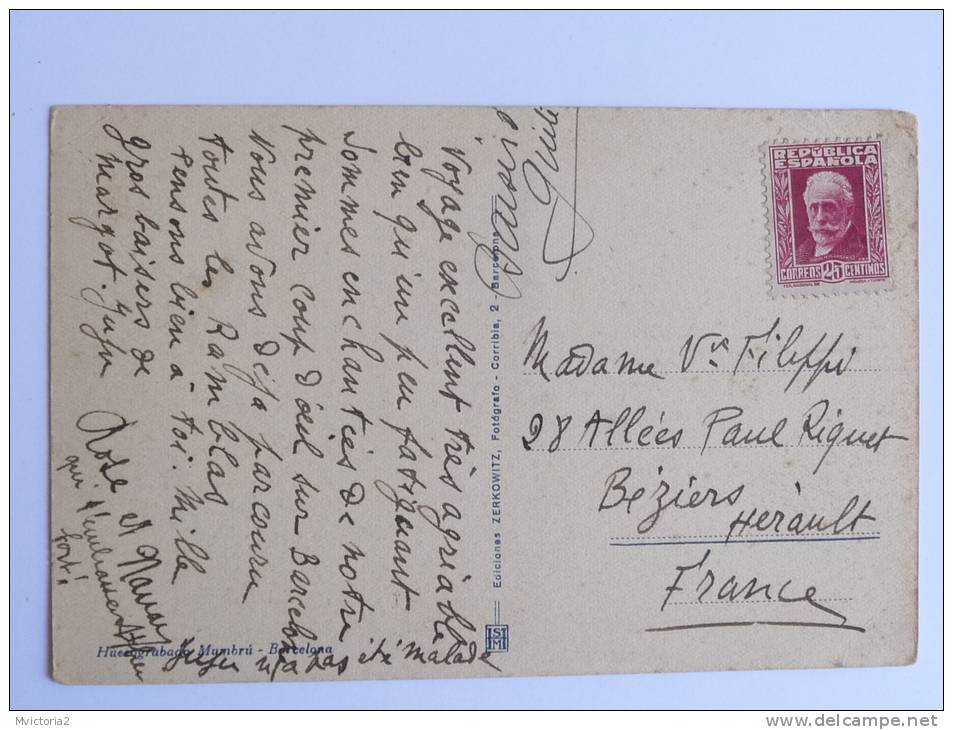 Voyage excellent très agréable
bien qu'un peu fatiguant
sommes enchantés de notre
premier coup d'œil sur Barcelone
Vous avons déjà parcouru
toutes les Ramblas
pensons bien à toi. Mille
gros baisers de
Margot. Juju
Rose et
qui t'embrassent
fort
Juju n'a pas été malade
Huecograbado Mumbrú - Barcelona
Ediciones ZERKOWITZ, Fotógrafo - Corribia, 2 - Barcelona
REPÚBLICA
ESPAÑOLA
CORREOS 25 CENTIMOS
Madame Vve Filippi
28 Allées Paul Riquet
Béziers
Hérault
France
Mvictoria2
www.delcampe.net